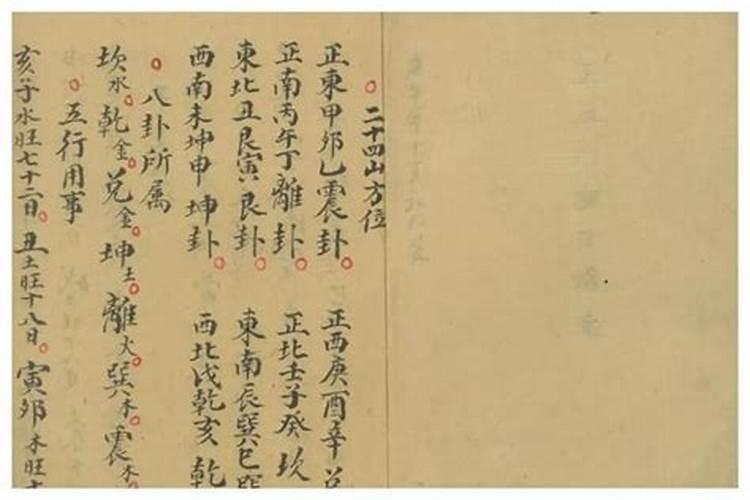 二十四山方位
正東甲卯乙震卦 正西庚酉辛兌
正南丙午丁離卦 正北壬子癸坎
東北丑艮寅艮卦 東南辰巽巳巽
西南未坤申坤卦 西北戌乾亥乾
八卦所属
坎水 乾金 兌金 坤土 離火 巽木 震木
五行用事
亥子水旺七十二日 丑土旺十八日 寅卯木旺十